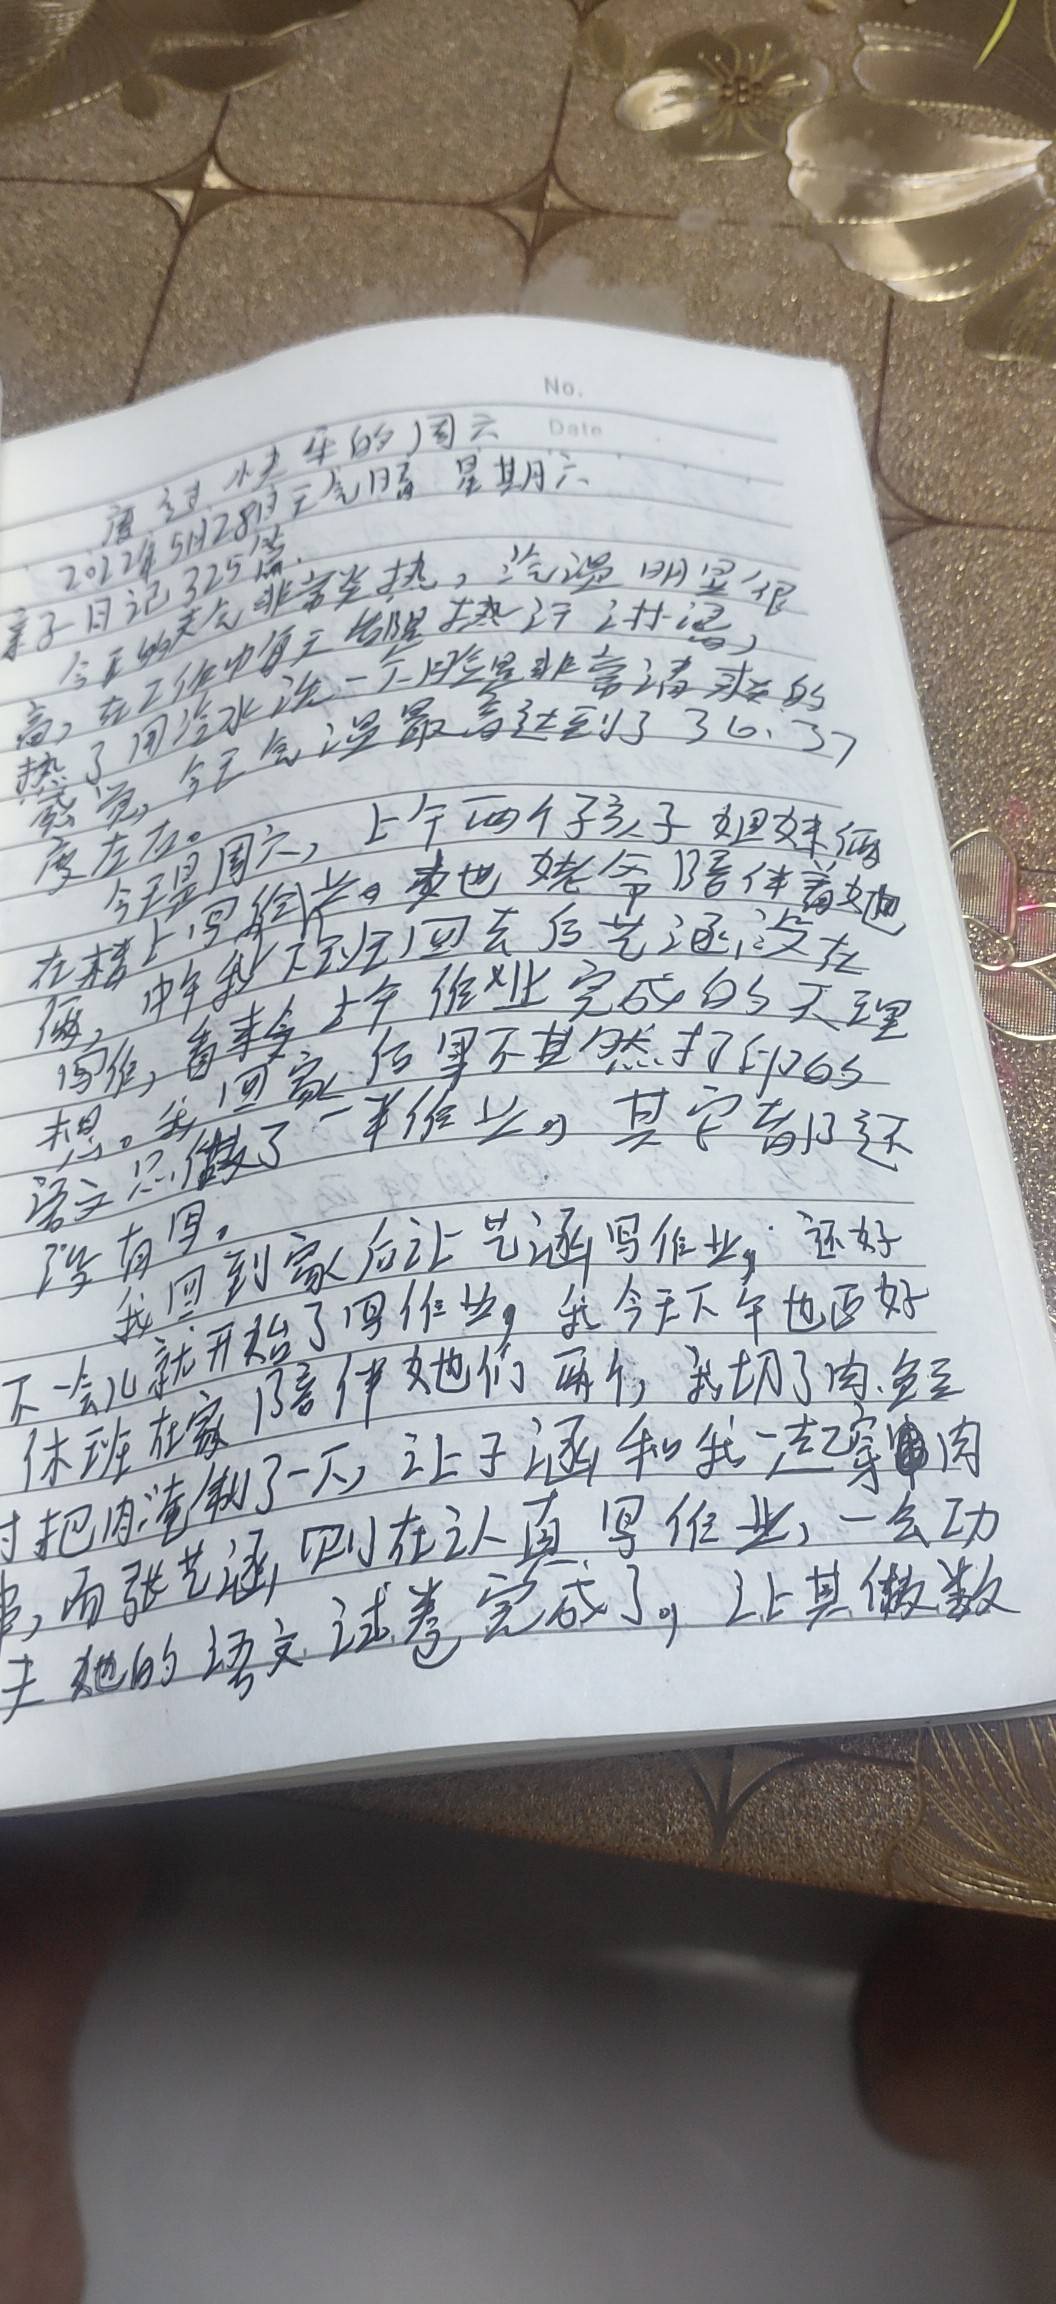 No.
Date
度过快乐的周六
2022年5月28日天气晴 星期六
亲子日记325篇.
今天的天气非常炎热，气温明显很
高，在工作中每天都是热汗
热了用冷水洗一个脸是非常清爽的
感觉，今天气温最高达到了36、37
度左右。
今天是周六，上午两个孩子姐妹俩
在楼上写作业。她姥爷陪伴着她
俩，中午我下班回去后艺涵没在
写作，看来今上午作业完成的不理
想。我回家后果不其然打印的
语文只做了一半作业，其它都还
没有写。
我回到家后让艺涵写作业，还好
不一会儿就开始了写作业，我今天下午也正好
休班在家陪伴她们两个，我切了肉.
把肉腌制了一下，让子涵和我一起穿串肉
串，而张艺涵则在认真写作业，一会功
夫她的语文试卷完成了，让其做数